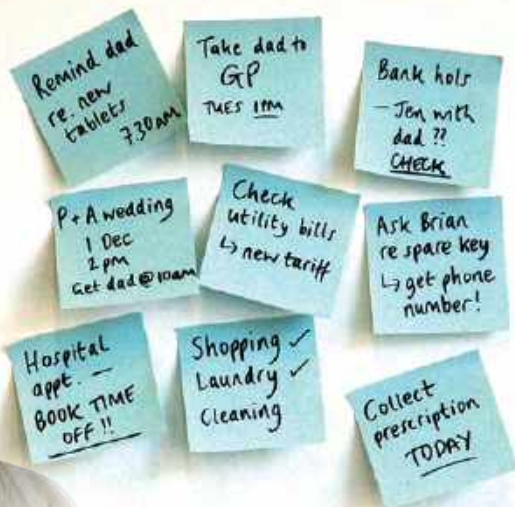 Remind dad
re. new
tablets
7.30am
Take dad to
GP
TUES 1PM
Bank hols
- Jen with
dad ??
CHECK
P + A wedding
1 Dec
2 pm
Get dad @ 10am
Check
utility bills
↳ new tariff
Ask Brian
re spare key
↳ get phone
number!
Hospital
appt. —
BOOK TIME
OFF !!
Shopping ✓
Laundry ✓
Cleaning
Collect
prescription
TODAY